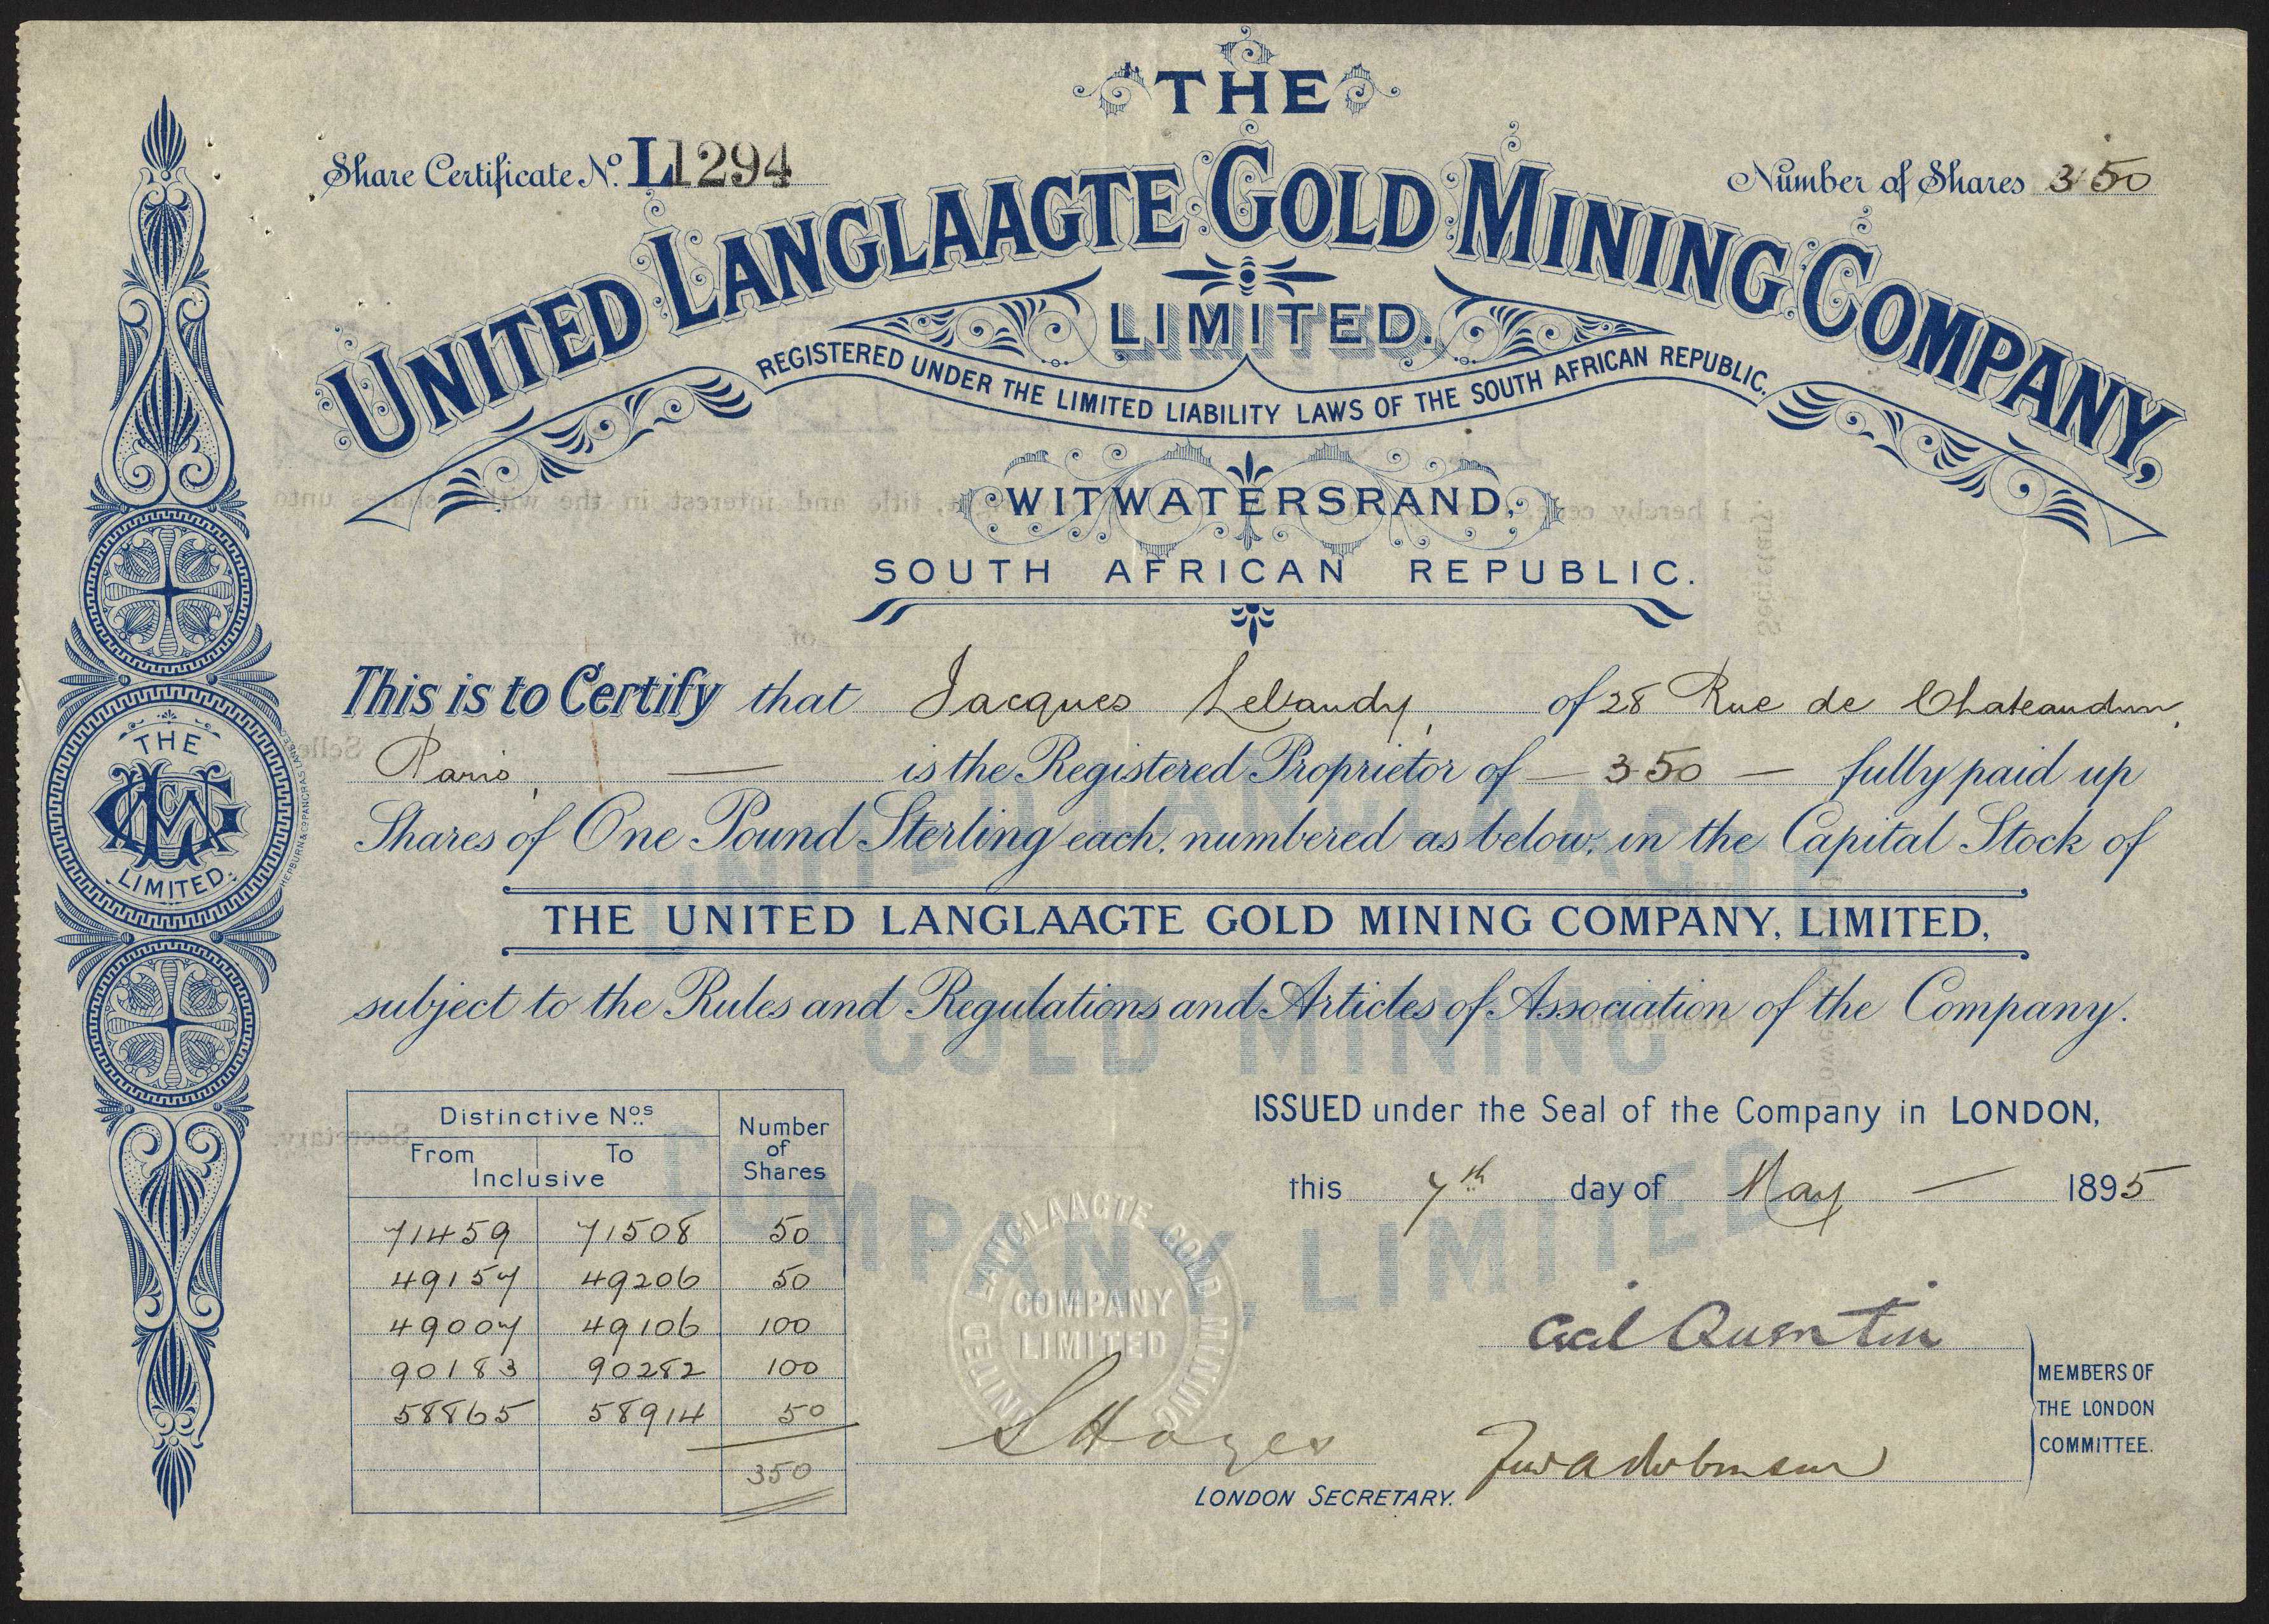 THE
Share Certificate No. L1294
Number of Shares 350
UNITED LANGLAAGTE GOLD MINING COMPANY,
LIMITED.
REGISTERED UNDER THE LIMITED LIABILITY LAWS OF THE SOUTH AFRICAN REPUBLIC.
WITWATERSRAND,
SOUTH AFRICAN REPUBLIC.
This is to Certify that Jacques Lebaudy, of 28 Rue de Chateaudun,
Paris, — is the Registered Proprietor of — 350 — fully paid up
Shares of One Pound Sterling each, numbered as below, in the Capital Stock of
THE UNITED LANGLAAGTE GOLD MINING COMPANY, LIMITED,
subject to the Rules and Regulations and Articles of Association of the Company.
THE
LIMITED.
HEPBURN & CO PANCRAS LANE E.C.
UNITED LANGLAAGTE
GOLD MINING
COMPANY, LIMITED
Distinctive Nos. Number of Shares
From To
Inclusive
71459 71508 50
49157 49206 50
49007 49106 100
90183 90282 100
58865 58914 50
350
ISSUED under the Seal of the Company in LONDON,
this 7th day of May — 1895
UNITED LANGLAAGTE GOLD MINING
COMPANY
LIMITED
Cecil Quentin
MEMBERS OF
THE LONDON
COMMITTEE.
S Hayes
LONDON SECRETARY.